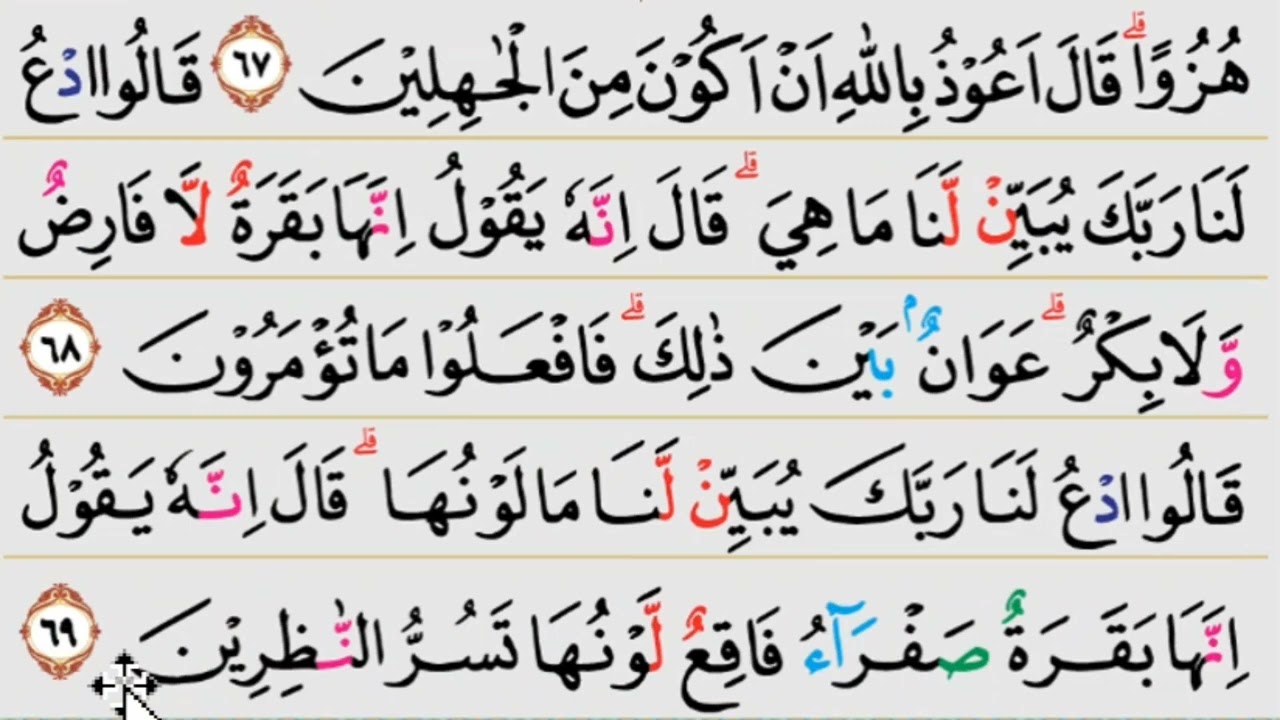 هُزُوًا ۗ قَالَ اَعُوْذُ بِاللّٰهِ اَنْ اَكُوْنَ مِنَ الْجٰهِلِيْنَ ٦٧ قَالُوا ادْعُ
لَنَا رَبَّكَ يُبَيِّنْ لَّنَا مَا هِيَ ۗ قَالَ اِنَّهٗ يَقُوْلُ اِنَّهَا بَقَرَةٌ لَّا فَارِضٌ
وَّلَا بِكْرٌ ۗ عَوَانٌ ۢ بَيْنَ ذٰلِكَ ۗ فَافْعَلُوْا مَا تُؤْمَرُوْنَ ٦٨
قَالُوا ادْعُ لَنَا رَبَّكَ يُبَيِّنْ لَّنَا مَا لَوْنُهَا ۗ قَالَ اِنَّهٗ يَقُوْلُ
اِنَّهَا بَقَرَةٌ صَفْرَآءُ فَاقِعٌ لَّوْنُهَا تَسُرُّ النّٰظِرِيْنَ ٦٩